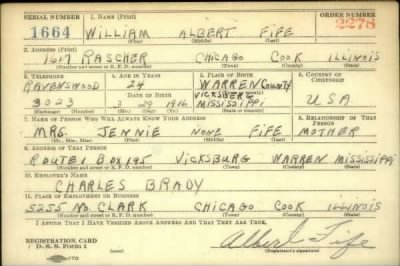 SERIAL NUMBER 1. NAME (Print) ORDER NUMBER
1664 WILLIAM ALBERT FIFE 2278
(First) (Middle) (Last)
2. ADDRESS (Print)
1617 RASCHER CHICAGO COOK ILLINOIS
(Number and street or R. F. D. number) (Town) (County) (State)
3. TELEPHONE 4. AGE IN YEARS 5. PLACE OF BIRTH 6. COUNTRY OF CITIZENSHIP
RAVENSWOOD 24 WARREN COUNTY
DATE OF BIRTH VICKSBERG
3023 3 29 1916 MISSISSIPPI USA
(Exchange) (Number) (Mo.) (Day) (Yr.) (State or country)
7. NAME OF PERSON WHO WILL ALWAYS KNOW YOUR ADDRESS 8. RELATIONSHIP OF THAT PERSON
MRS. JENNIE NONE FIFE MOTHER
(Mr., Mrs., Miss) (First) (Middle) (Last)
9. ADDRESS OF THAT PERSON
ROUTE 1 BOX 195 VICKSBURG WARREN MISSISSIPPI
(Number and street or R. F. D. number) (Town) (County) (State)
10. EMPLOYER'S NAME
CHARLES BRADY
11. PLACE OF EMPLOYMENT OR BUSINESS
5255 No. CLARK CHICAGO COOK ILLINOIS
(Number and street or R. F. D. number) (Town) (County) (State)
I AFFIRM THAT I HAVE VERIFIED ABOVE ANSWERS AND THAT THEY ARE TRUE.
REGISTRATION CARD
D. S. S. Form 1 Albert Fife
(Registrant's signature)